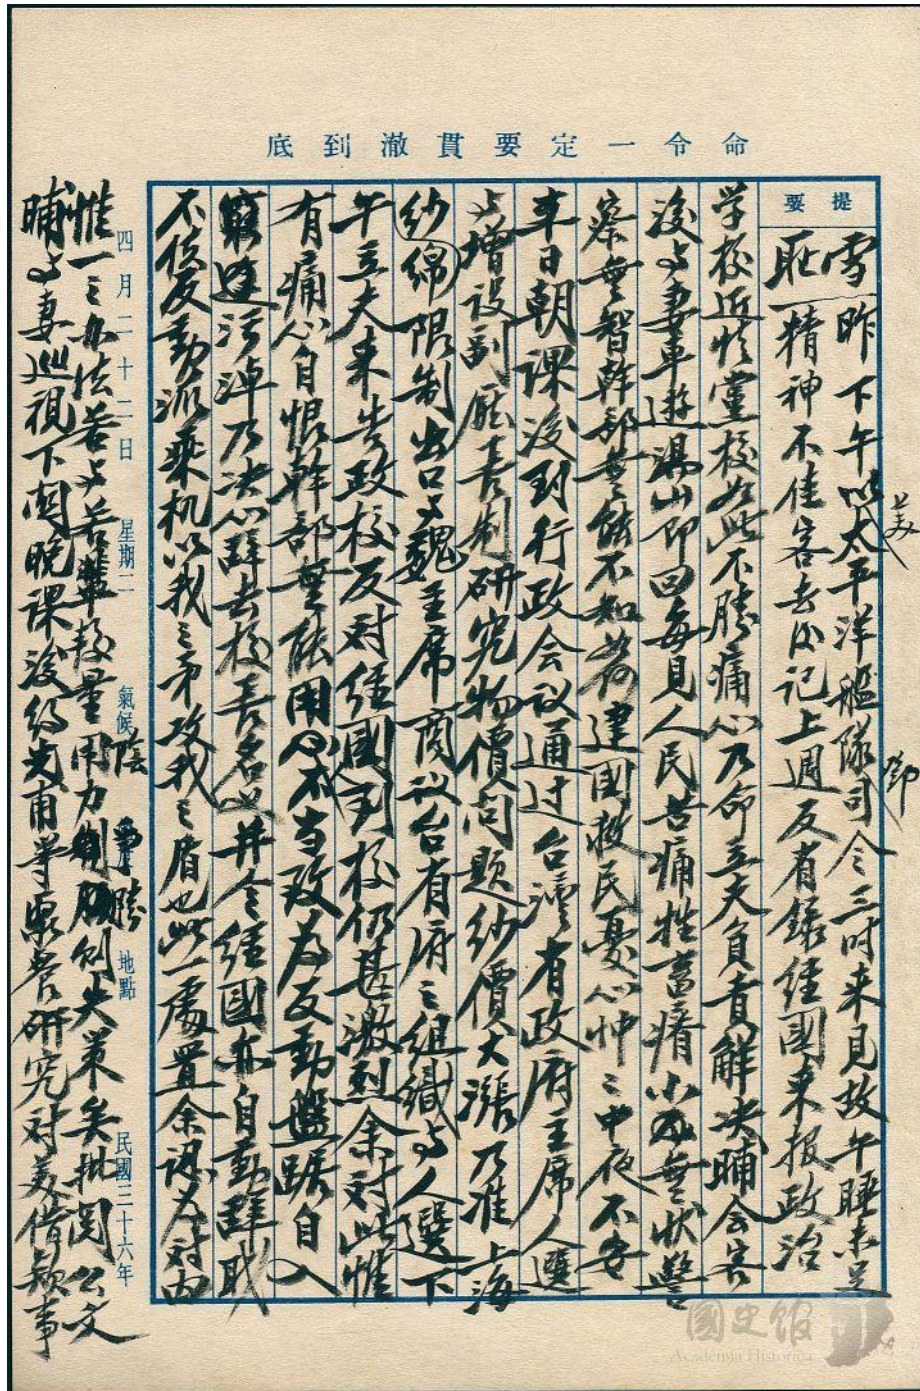 命令一定要貫澈到底
提要
雪昨下午以美太平洋艦隊司令鄧三時来見故午睡未足
耻精神不佳客去後記上週反省錄經國来报政治
学校近情黨校如此不勝痛心乃命立夫負責解决晡会客
後与妻車遊湯山即回每見人民苦痛牲畜瘠小無狀警
察無智幹部無能不知若何建國救民憂心忡ミ中夜不安
本日朝課後到行政会议通过台灣省政府主席人選
与增设副廳長制研究物價问题纱價大漲乃准上海
纱綿限制出口与魏主席商议台省府之組織与人選下
午立夫来告政校反对經國到校仍甚激烈余对此惟
有痛心自恨幹部無能用心不当致为反動盤踞自入
窮途污淖乃决心辞去校長名义并令經國亦自動辞职
不使反動派乘机以我之矛攻我之盾也此一處置余認为对内
惟一之办法若与若輩較量用力则愚劣失策矣批阅公文
晡与妻巡視下関晚課後约光甫等聚餐研究对美借款事
四月二十二日 星期二 氣候陰 地點 民國三十六年
國史館
Academia Historica